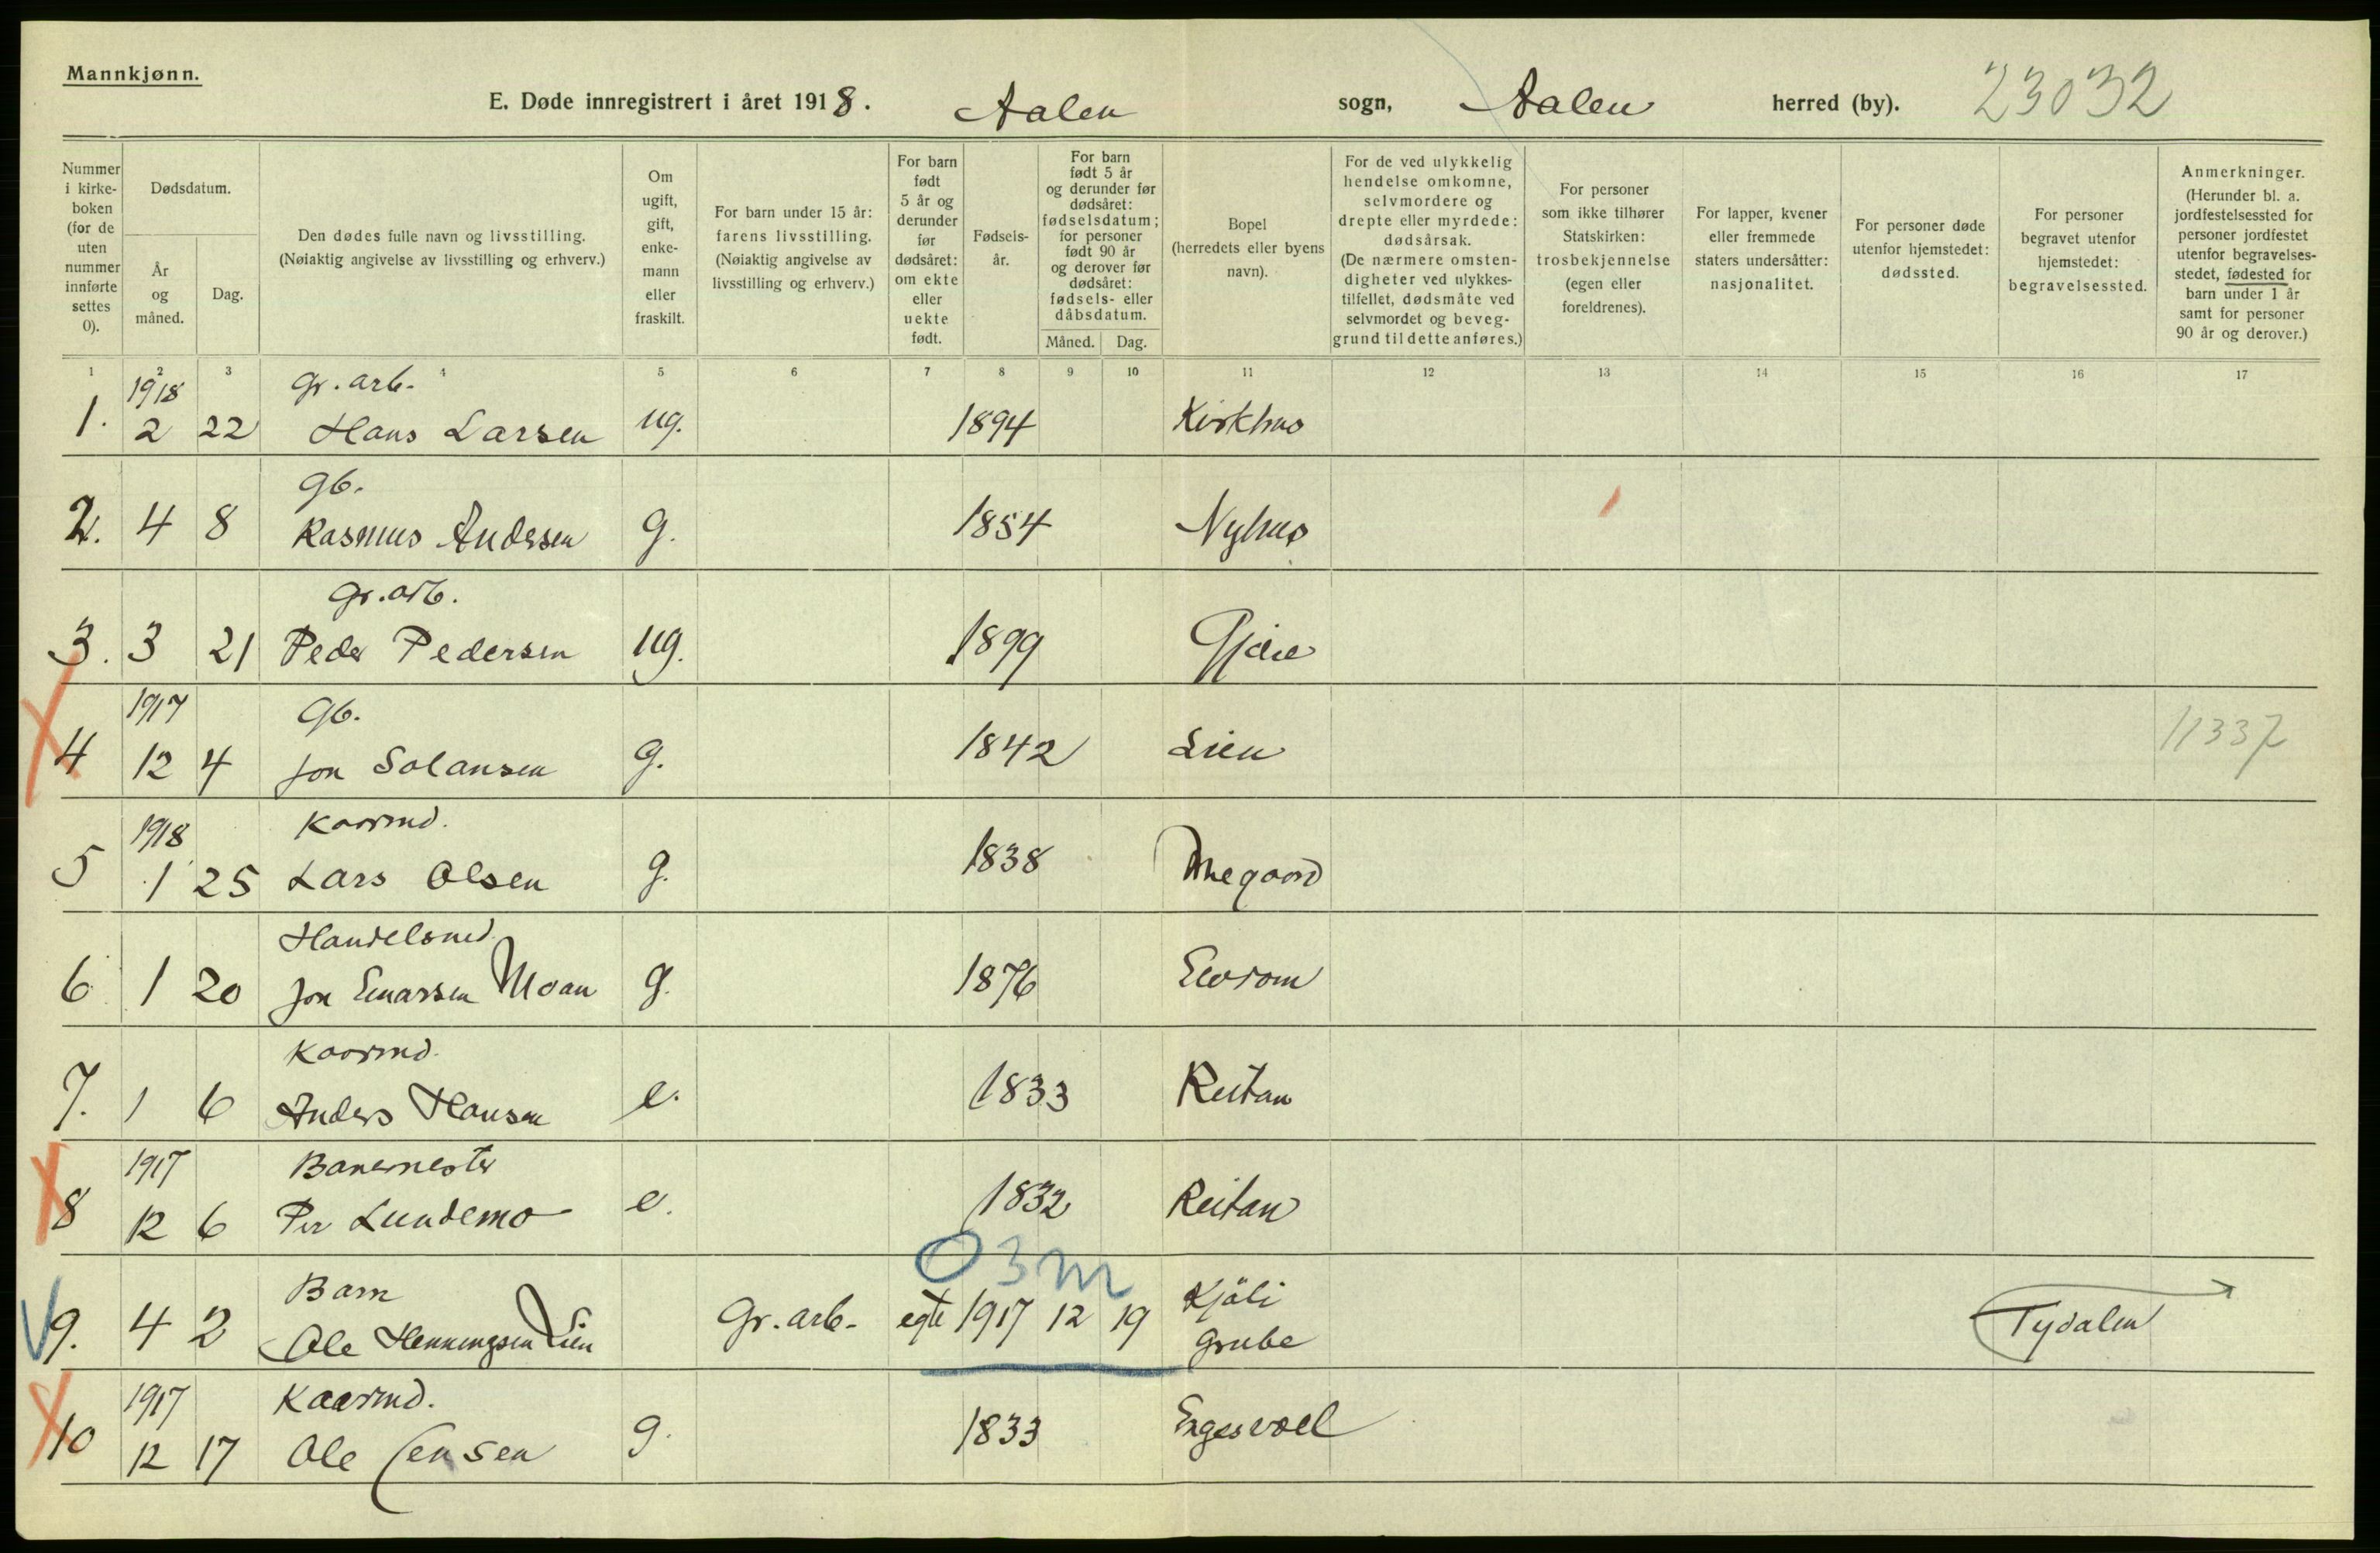 Mannkjønn.
E. Døde innregistrert i året 1918. Aalen sogn, Aalen herred (by). 23032
Nummer i kirke- boken (for de uten nummer innførte settes 0).
Dødsdatum.
År og måned.
Dag.
Den dødes fulle navn og livsstilling.
(Nøiaktig angivelse av livsstilling og erhverv.)
Om ugift, gift, enke- mann eller fraskilt.
For barn under 15 år: farens livsstilling. (Nøiaktig angivelse av livsstilling og erhverv.)
For barn født 5 år og derunder før dødsåret: om ekte eller uekte født.
Fødsels- år.
For barn født 5 år og derunder før dødsåret: fødselsdatum; for personer født 90 år og derover før dødsåret: fødsels- eller dåbsdatum.
Måned. Dag.
Bopel (herredets eller byens navn).
For de ved ulykkelig hendelse omkomne, selvmordere og drepte eller myrdede: dødsårsak. (De nærmere omsten- digheter ved ulykkes- tilfellet, dødsmåte ved selvmordet og beveg- grund til dette anføres.)
For personer som ikke tilhører Statskirken: trosbekjennelse (egen eller foreldrenes).
For lapper, kvener eller fremmede staters undersåtter: nasjonalitet.
For personer døde utenfor hjemstedet: dødssted.
For personer begravet utenfor hjemstedet: begravelsessted.
Anmerkninger. (Herunder bl. a. jordfestelsessted for personer jordfestet utenfor begravelses- stedet, fødested for barn under 1 år samt for personer 90 år og derover.)
1 2 3 4 5 6 7 8 9 10 11 12 13 14 15 16 17
1918 gr. arb.
1. 2 22 Hans Larsen ug. 1894 Kirkhus
gb.
2. 4 8 Rasmus Andersen g. 1854 Nyhus
gr. arb.
3. 3 21 Peder Pedersen ug. 1899
1917 gb.
4 12 4 Jon Solansen g. 1842 Lien 11337
1918 Kaarmd.
5 1 25 Lars Olsen g. 1838
Handelsmd.
6 1 20 Jon Einarsen Moan g. 1876
Kaarmd.
7. 1 6 Anders Hansen e. 1833 Reitan
1917 Banemester
8 12 6 Per Lundemo e. 1832 Reitan
03m
Barn
9. 4 2 Ole Henningsen Lien Gr. arb. egte 1917 12 19 Kjöli Grube Tydalen
1917 Kaarmd.
10 12 17 Ole Jensen g. 1833 Engesvoel